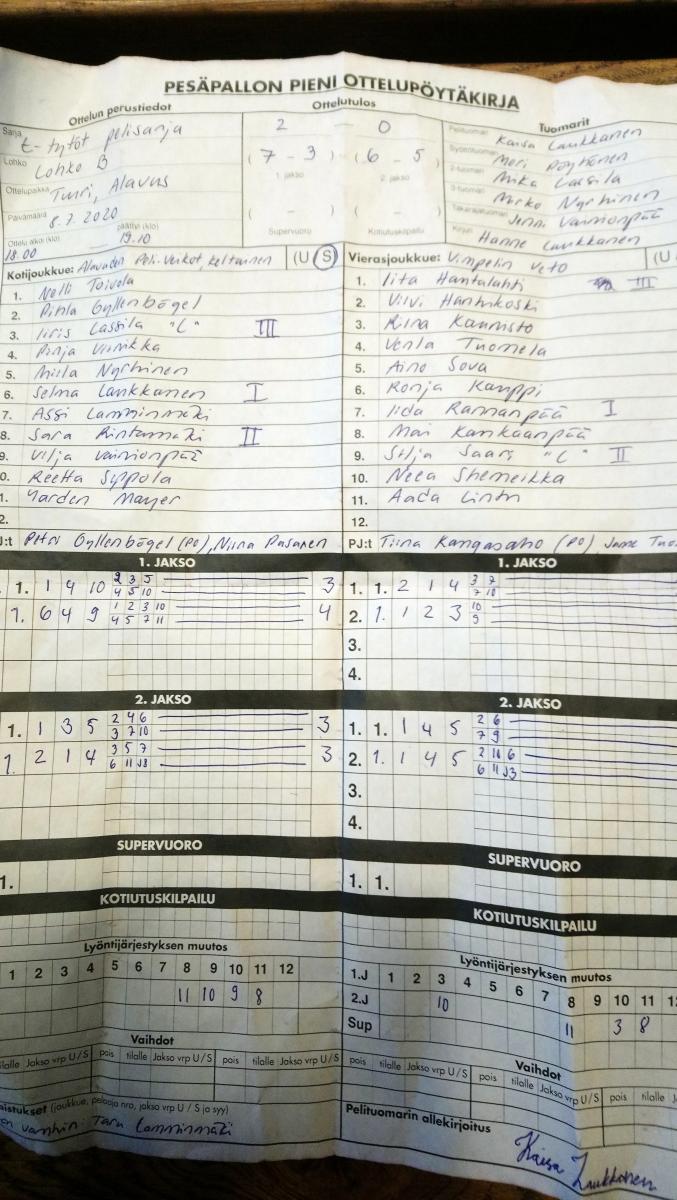 PESÄPALLON PIENI OTTELUPÖYTÄKIRJA
Ottelun perustiedot
Sarja E-tytöt pelisarja
Lohko Lohko B
Ottelupaikka Tuuri, Alavus
Päivämäärä 8.7.2020
Ottelu alkoi (klo) 18.00 päättyi (klo) 19.10
Ottelutulos
2 – 0
(7 – 3) (6 – 5)
1. jakso 2. jakso
( – ) ( – )
Supervuoro Kotiutuskilpailu
Tuomarit
Pelituomari Kaisa Laukkanen
Syöttötuomari Meri Pöyhönen
2-tuomari Mika Lassila
3-tuomari Mirko Nyrhinen
Takarajatuomari Jenni Vainionpää
Kirjuri Hanne Laukkanen
Kotijoukkue: Alavuden Peli-Veikot, keltainen (U S)
1. Nelli Toivola
2. Pihla Gyllenbögel
3. Iiris Lassila "C" III
4. Pinja Viinikka
5. Milla Nyrhinen
6. Selma Laukkanen I
7. Assi Lamminmäki
8. Sara Rintamäki II
9. Vilja Vainionpää
0. Reetta Sippola
1. Yarden Mayer
2.
J:t Petri Gyllenbögel (PO), Niina Pasanen
Vierasjoukkue: Vimpelin Veto (U
1. Iita Hantulahti III
2. Vilvi Hanhikoski
3. Riina Kaunisto
4. Venla Tuomela
5. Aino Sova
6. Ronja Kamppi
7. Iida Rannanpää I
8. Mai Kankaanpää
9. Silja Saari "C" II
10. Neea Shemeikka
11. Aada Lintu
12.
PJ:t Tiina Kangasaho (PO)
1. JAKSO
1. 1 4 10 2 3 5 3
4 5 10
1. 6 4 9 1 2 3 10 4
4 5 7 11
1. JAKSO
1. 1. 2 1 4 3 7
7 10
2. 1. 1 2 3 10
9
3.
4.
2. JAKSO
1. 1 3 5 2 4 6 3
3 7 10
1. 2 1 4 3 5 7 3
6 11 J3
2. JAKSO
1. 1. 1 4 5 2 6
7 9
2. 1. 1 4 5 2 11 6
6 11 J3
3.
4.
SUPERVUORO
1.
SUPERVUORO
1. 1.
KOTIUTUSKILPAILU
KOTIUTUSKILPAILU
Lyöntijärjestyksen muutos
1 2 3 4 5 6 7 8 9 10 11 12
11 10 9 8
Lyöntijärjestyksen muutos
1.J 1 2 3 4 5 6 7 8 9 10 11 12
2.J 10
Sup 11 3 8
Vaihdot
tilalle Jakso vrp U/S pois tilalle Jakso vrp U/S pois tilalle Jakso vrp U/S
Vaihdot
pois tilalle Jakso vrp U/S pois tilalle Jakso vrp U/S pois tilalle
aistukset (joukkue, pelaaja nro, jakso vrp U / S ja syy)
vanhin: Taru Lamminmäki
Pelituomarin allekirjoitus
Kaisa Laukkanen